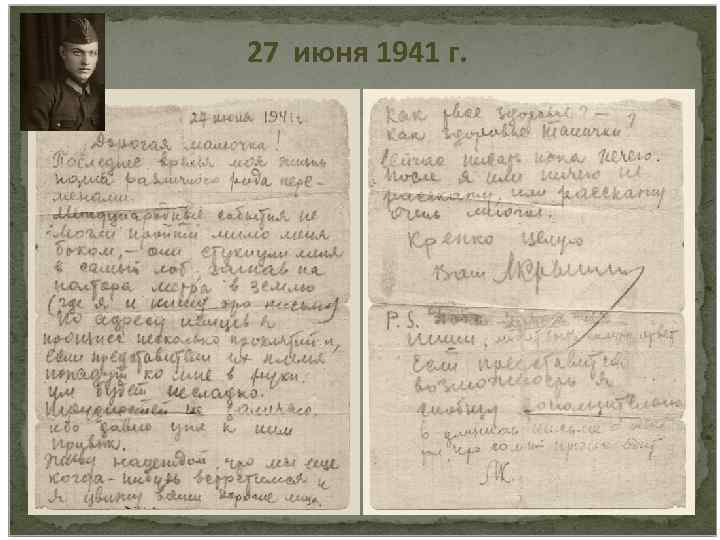 27 июня 1941 г.
27 июня 1941 г.
Дорогая мамочка!
Последнее время моя жизнь
полна различного рода пере-
менами.
Международные события не
могли пройти мимо меня
боком, — они стукнули меня
в самый лоб, загнав на
полтора метра в землю
(где я и пишу это письмо)
По адресу немцев я
несколько проклятий и,
если представители их племя
попадут ко мне в руки
им будет несладко.
Трудностей не замечаю,
ибо давно уже к ним
привык.
Живу надеждой, что мы еще
когда-нибудь встретимся и
я увижу ваши хорошие лица.
Как твое здоровье? —
Как здоровье Танички?
Сейчас писать пока нечего.
После я или ничего не
расскажу, или расскажу
очень многое.
Крепко целую
Ваш
P.S. Пока
Пиши, ответ
Если представится
возможность я
сообщу дополнительно
в письме о